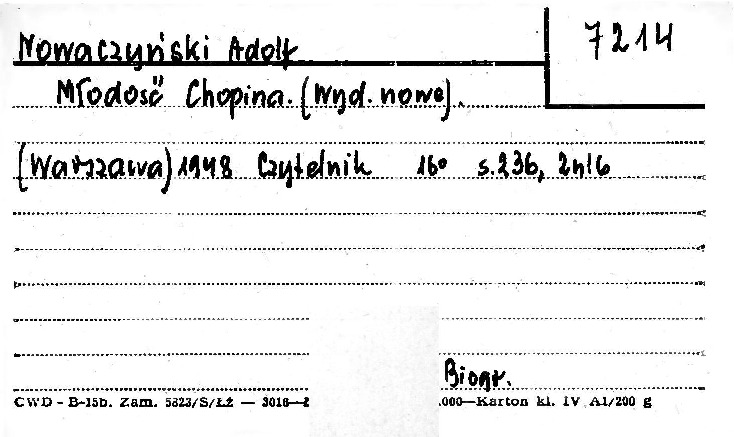 Nowaczyński Adolf
7214
Młodość Chopina. (Wyd. nowe).
(Warszawa) 1948 Czytelnik 16° s. 236, 2nl6
Biogr.
CWD - B-15b. Zam. 5823/S/ŁŻ — 3016—2 .000—Karton kl. IV A1/200 g